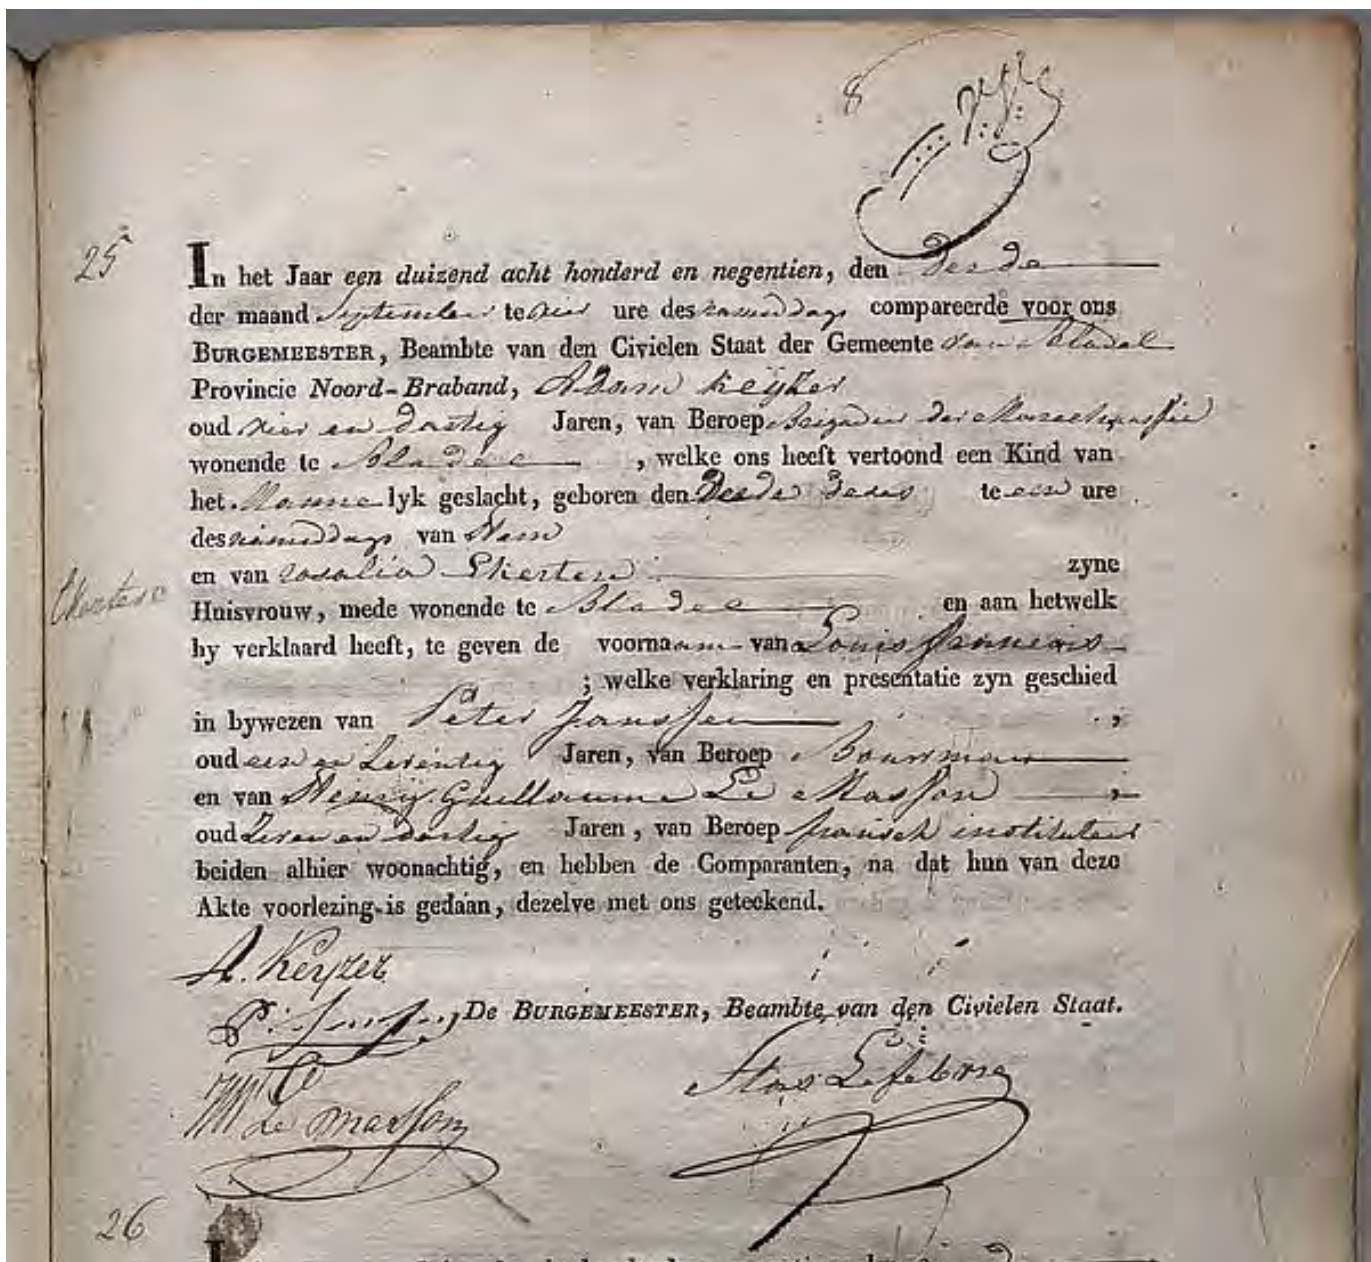 8
25
In het Jaar een duizend acht honderd en negentien, den derde
der maand September te vier ure des namiddags compareerde voor ons
BURGEMEESTER, Beambte van den Civielen Staat der Gemeente van Bladel
Provincie Noord-Braband, Adam Keÿzer
oud vier en dartig Jaren, van Beroep Brigadier der Marechaussée
wonende te Bladel , welke ons heeft vertoond een Kind van
het Manne lyk geslacht, geboren den derde dezes te een ure
des namiddags van Hem
en van rosalia Ekerten zyne
Huisvrouw, mede wonende te Bladel en aan hetwelk
hy verklaard heeft, te geven de voornaam van Louis francois
; welke verklaring en presentatie zyn geschied
in bywezen van Peter Janssen ,
oud een en Zeventig Jaren, van Beroep Bouwman
en van Henrÿ Guillaume Le Masson
oud Zeven en dartig Jaren, van Beroep fransch instituteur
beiden alhier woonachtig, en hebben de Comparanten, na dat hun van deze
Akte voorlezing is gedaan, dezelve met ons geteekend.
A. Keyzer
P: Janssen De BURGEMEESTER, Beambte van den Civielen Staat.
Stas Lefebvre
Le Masson
26